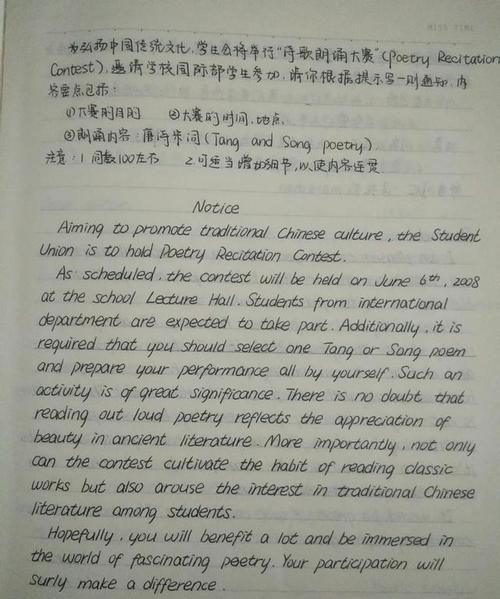 MISS TIME
为弘扬中国传统文化，学生会将举行"诗歌朗诵大赛"(Poetry Recitation
Contest)，邀请学校国际部学生参加，请你根据提示写一则通知，内
容要点包括：
①大赛的目的 ②大赛的时间、地点
③朗诵内容：唐诗宋词(Tang and Song poetry)
注意：1 词数100左右 2.可适当增加细节，以使内容连贯
Notice
Aiming to promote traditional Chinese culture, the Student
Union is to hold Poetry Recitation Contest.
As scheduled, the contest will be held on June 6th, 2008
at the school Lecture Hall. Students from international
department are expected to take part. Additionally, it is
required that you should select one Tang or Song poem
and prepare your performance all by yourself. Such an
activity is of great significance. There is no doubt that
reading out loud poetry reflects the appreciation of
beauty in ancient literature. More importantly, not only
can the contest cultivate the habit of reading classic
works but also arouse the interest in traditional Chinese
literature among students.
Hopefully, you will benefit a lot and be immersed in
the world of fascinating poetry. Your participation will
surly make a difference.